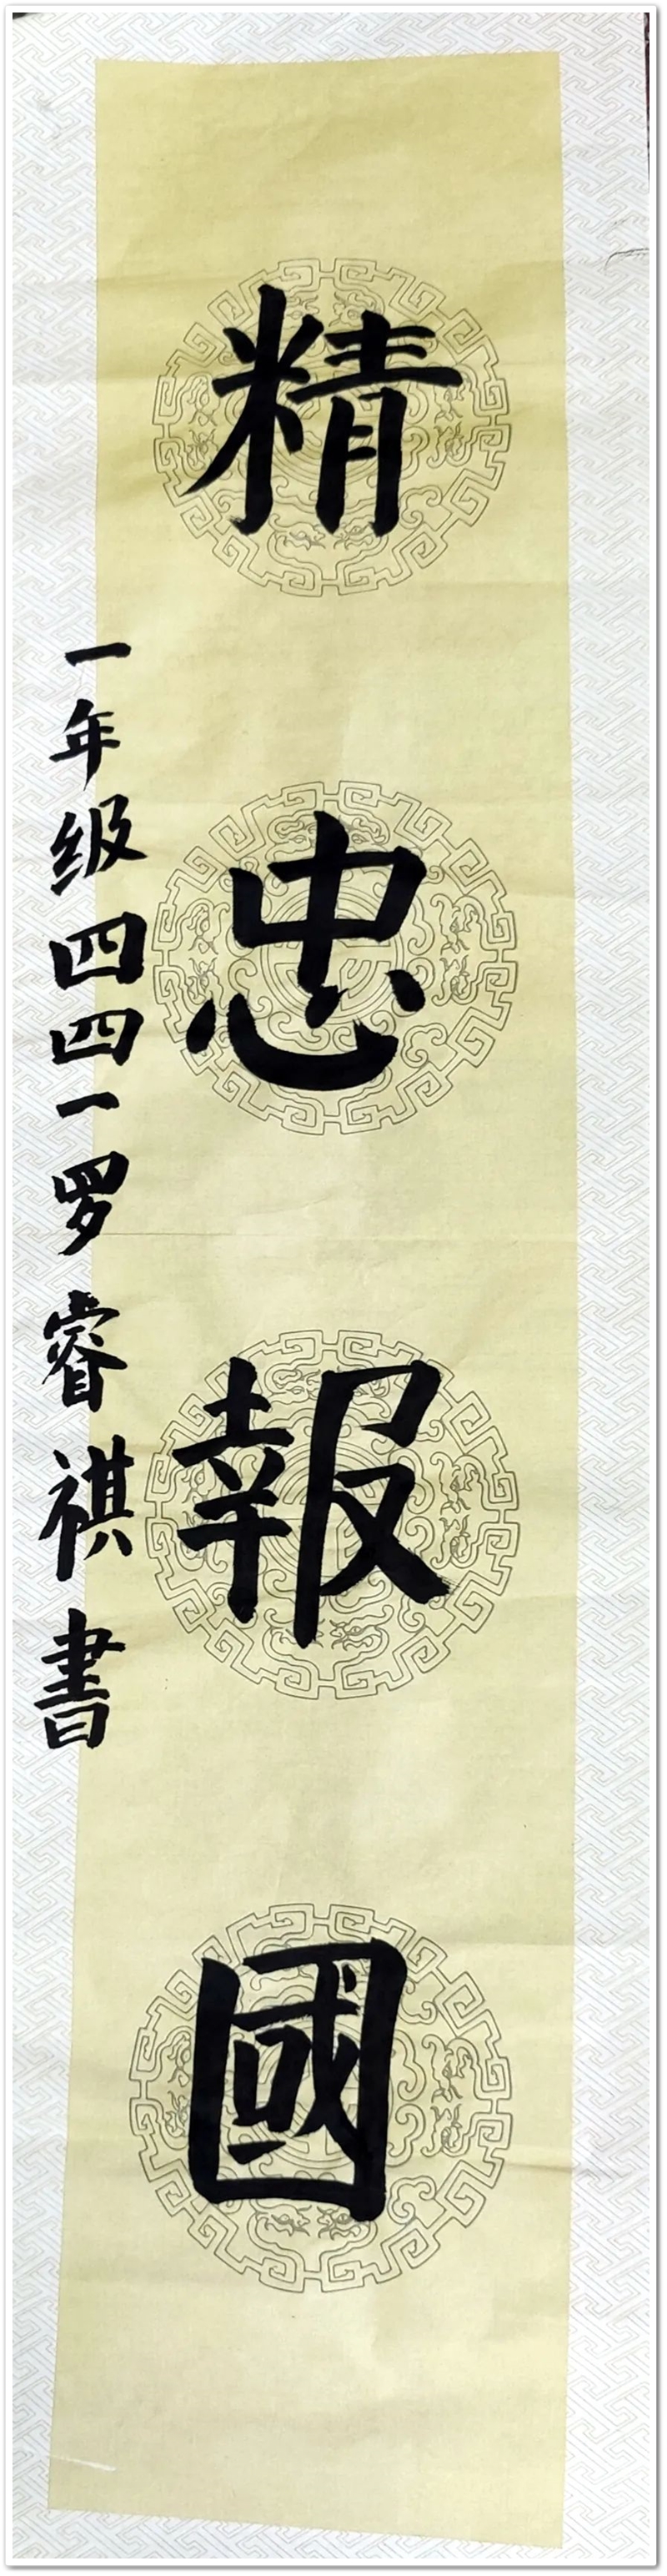 精忠報國
一年级四四一罗睿祺書